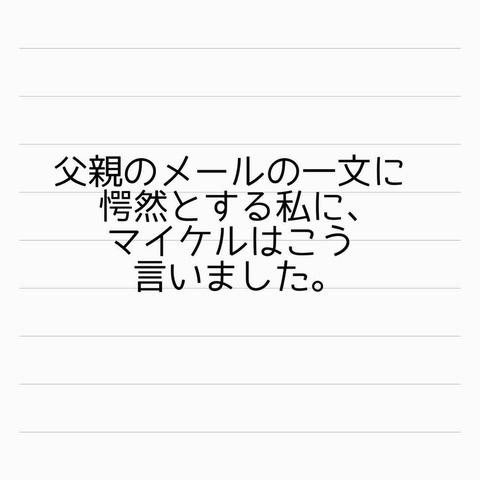 父親のメールの一文に
愕然とする私に、
マイケルはこう
言いました。